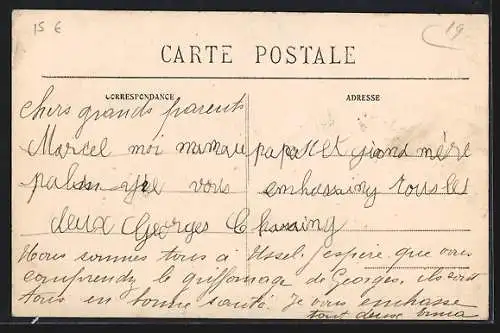 15 €
19
CARTE POSTALE
CORRESPONDANCE
ADRESSE
Chers grands parents
Marcel moi maman papa et grand mère
vous embrassing tous les
deux Georges Chassaing
Nous sommes tous à Ussel. J'espère que vous
comprendrez le griffonnage de Georges, ils sont
tous en bonne santé. Je vous embrasse
tout deux